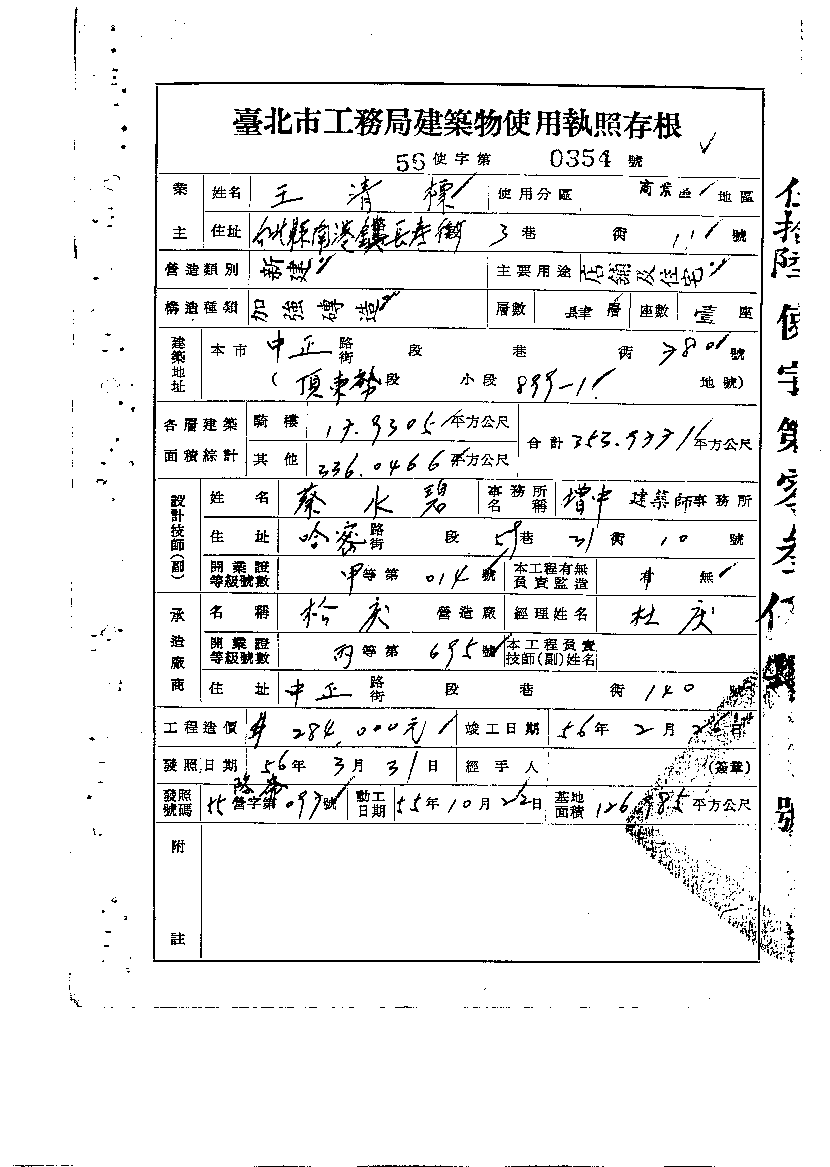 臺北市工務局建築物使用執照存根
56使字第 0354 號
業主 姓名 王清標 使用分區 商業區 地區
住址 台北縣南港鎮長壽街 3 巷 街 11 號
營造類別 新建 主要用途 店舖及住宅
構造種類 加強磚造 層數 層 座數 座
建築地址 本市 中正 路街 段 巷 街 號
(頂東勢段 小段 899-1 地號)
各層建築面積綜計 騎樓 17.9305 平方公尺 合計 353.9771 平方公尺
其他 336.0466 平方公尺
設計技師(副) 姓名 蔡水碧 事務所名稱 增中 建築師事務所
住址 哈密 路街 段 59 巷 21 街 10 號
開業證等級號數 甲等第 014 號 本工程有無負責監造 有 無
承造廠商 名稱 松庆 營造廠 經理姓名 杜庆
開業證等級號數 丙等第 695 號 本工程負責技師(副)姓名
住址 中正 路街 段 巷 街 140 號
工程造價 284,000元 竣工日期 56年 2月 日
發照日期 56年 3月 31日 經手人 (簽章)
發照號碼 55 營字第 號 動工日期 55年 10月 22日 基地面積 126.985 平方公尺
附註
伍拾陸使字第零叁伍肆號